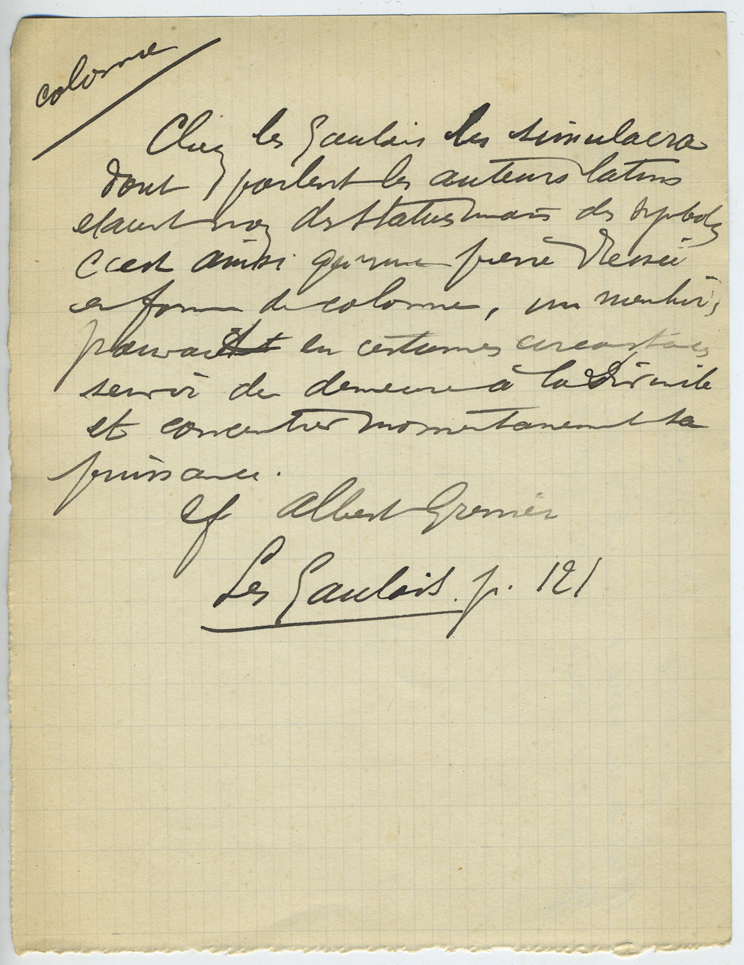 colonne
Chez les Gaulois les simulacra
dont parlent les auteurs latins
étaient non des statues mais des symboles
C'est ainsi qu'une pierre dressée
en forme de colonne, un menhir,
pouvait en certaines circonstances
servir de demeure à la divinité
et concentrer momentanément sa
puissance.
cf Albert Grenier
Les Gaulois. p. 121